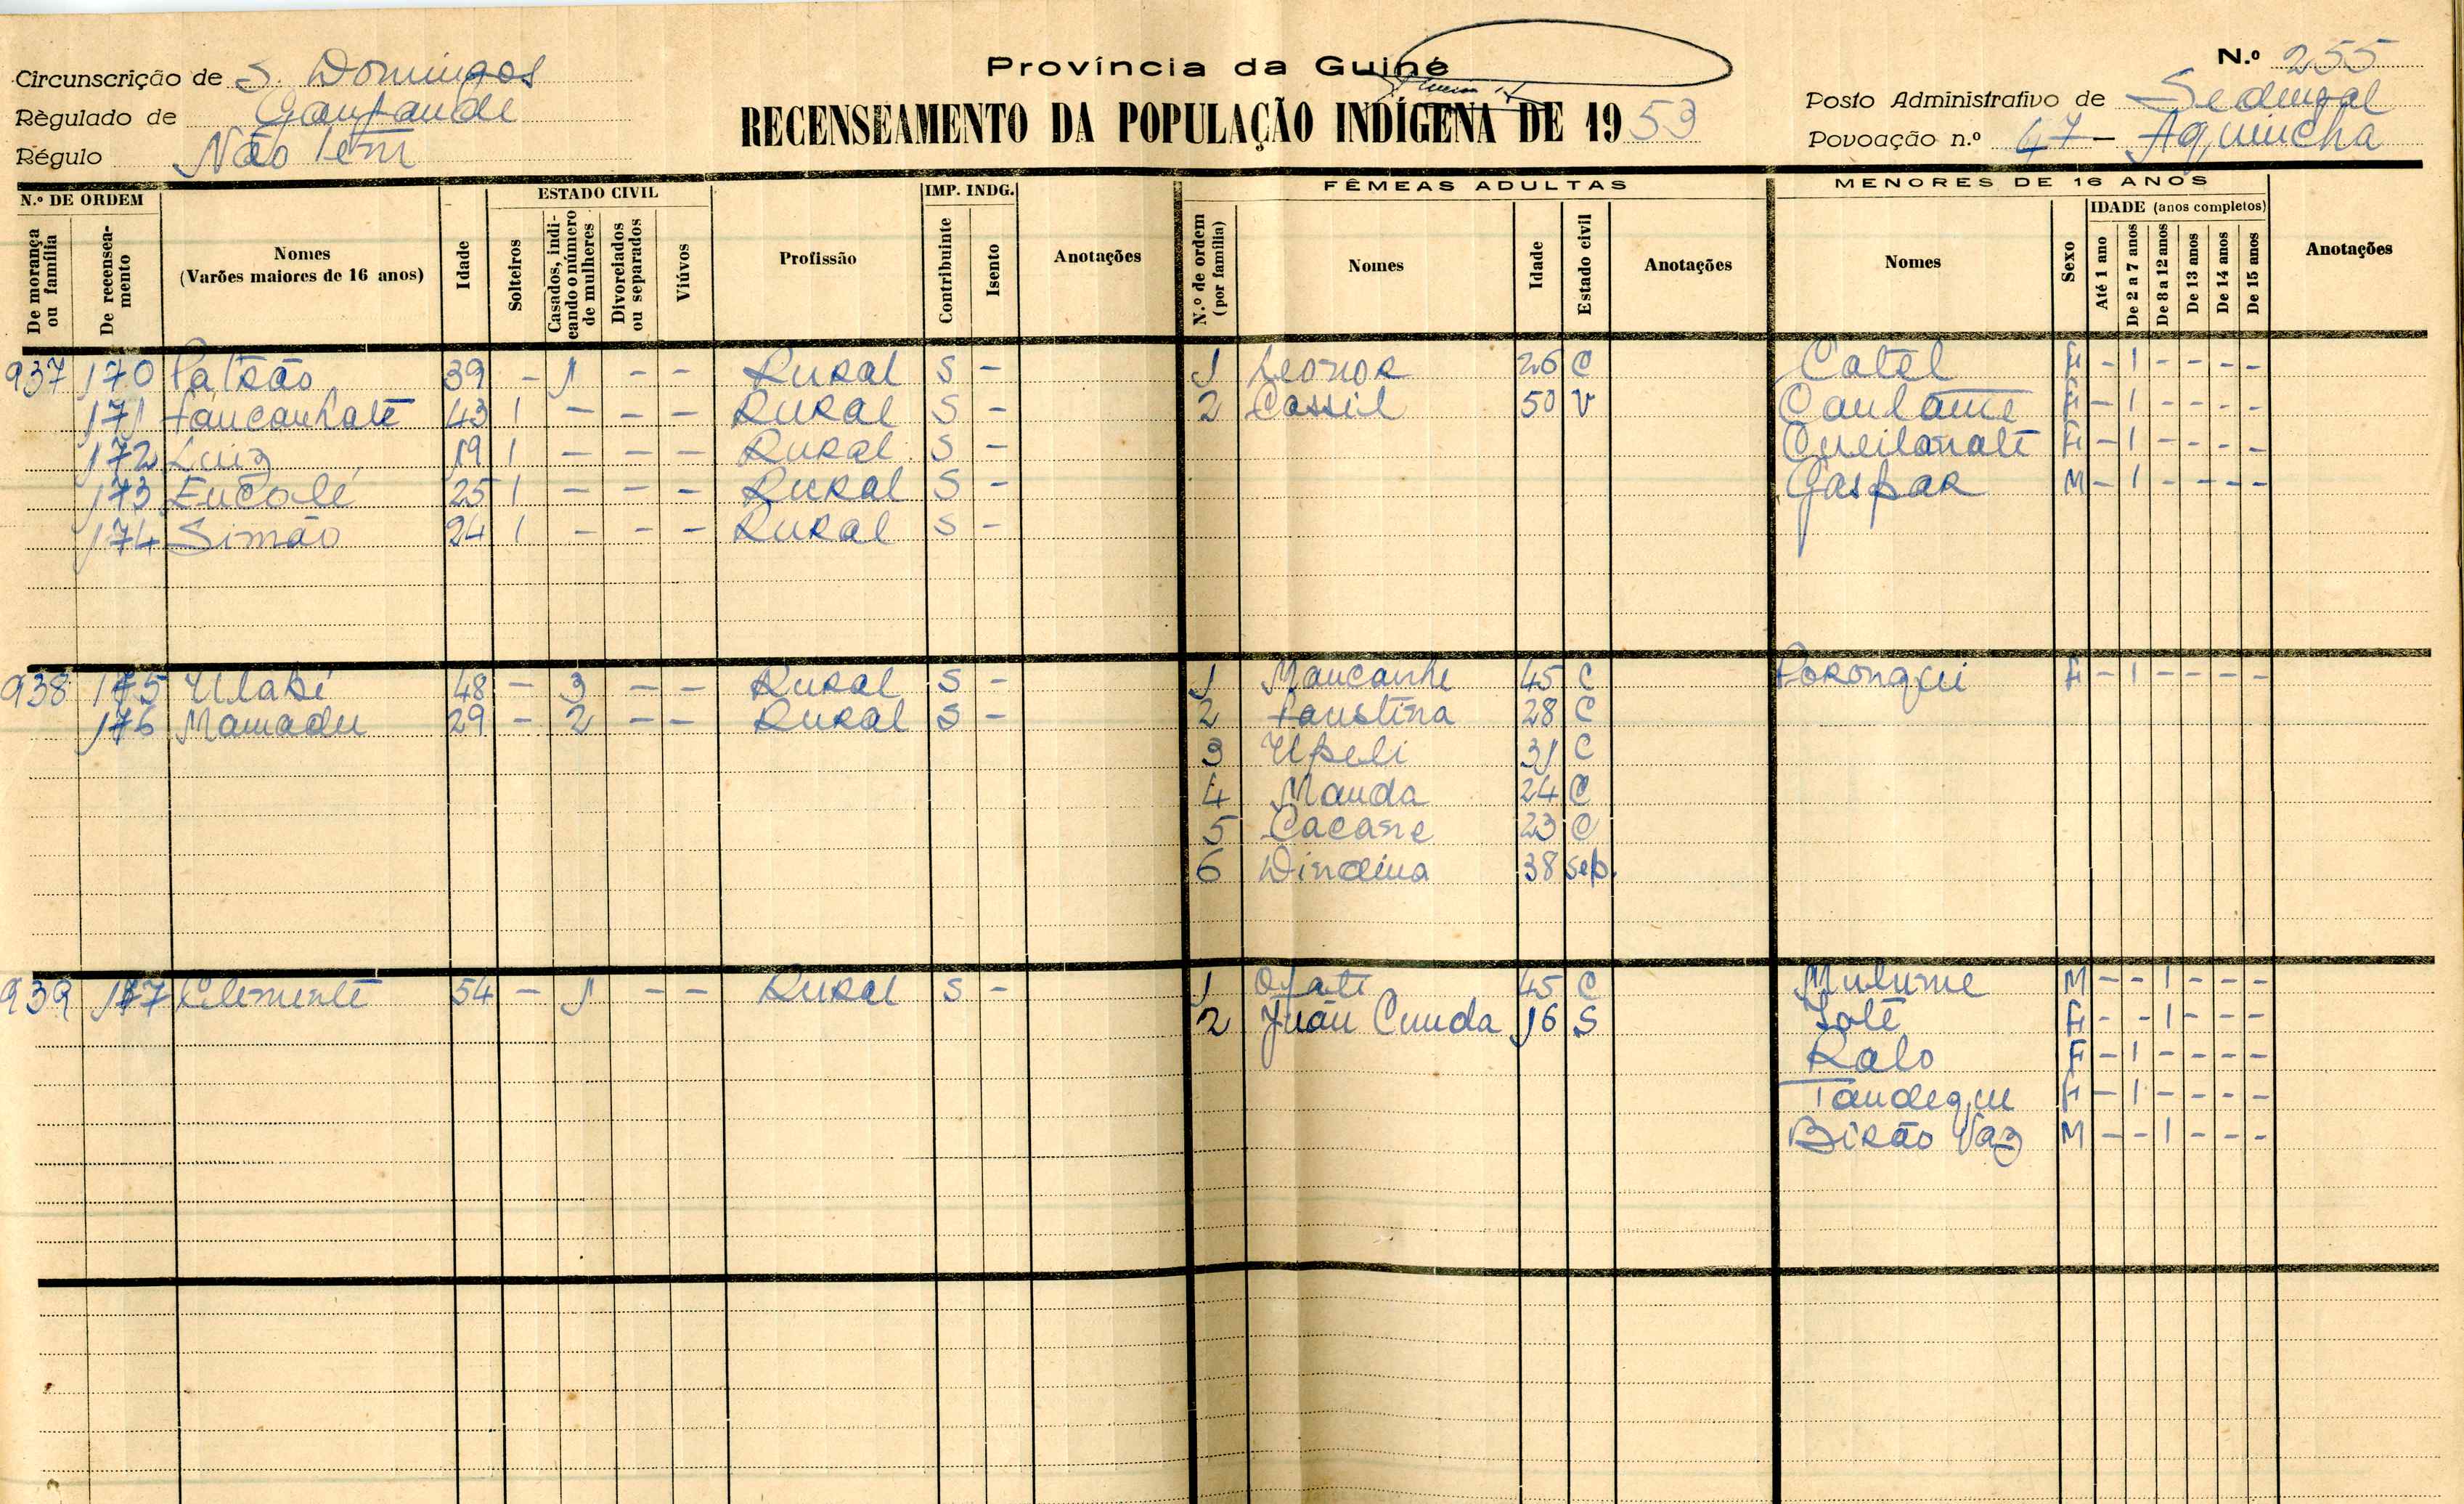 Província da Guiné
RECENSEAMENTO DA POPULAÇÃO INDÍGENA DE 1953
Circunscrição de S. Domingos
Règulado de
Régulo Não Tem
N.º 255
Posto Administrativo de Sedengal
Povoação n.º 47 - Aquincha
N.º DE ORDEM
De morança ou família
De recenseamento
Nomes
(Varões maiores de 16 anos)
Idade
ESTADO CIVIL
Solteiros
Casados, indicando o número de mulheres
Divorciados ou separados
Viúvos
Profissão
IMP. INDG.
Contribuinte
Isento
Anotações
FÊMEAS ADULTAS
N.º de ordem (por família)
Nomes
Idade
Estado civil
Anotações
MENORES DE 16 ANOS
Nomes
Sexo
IDADE (anos completos)
Até 1 ano
De 2 a 7 anos
De 8 a 12 anos
De 13 anos
De 14 anos
De 15 anos
Anotações
937 170 Patrão 39 - 1 - - Rural S - 1 Leonor 26 C Catel F - 1 - - - -
171 43 1 - - - Rural S - 2 Cassil 50 V F - 1 - - - -
172 Luiz 19 1 - - - Rural S - F - 1 - - - -
173 Eucolé 25 1 - - - Rural S - Gaspar M - 1 - - - -
174 Simão 24 1 - - - Rural S -
938 175 48 - 3 - - Rural S - 1 Maucanhe 45 C Porongui F - 1 - - - -
176 Mamadu 29 - 2 - - Rural S - 2 Faustina 28 C
3 Upeli 31 C
4 Manda 24 C
5 Cacane 23 C
6 38 sep.
939 177 Clemente 54 - 1 - - Rural S - 1 45 C Mulume M - - 1 - - -
2 Juau Cunda 16 S F - - 1 - - -
Ralo F - 1 - - - -
Tandeque F - 1 - - - -
Birão Vaz M - - 1 - - -